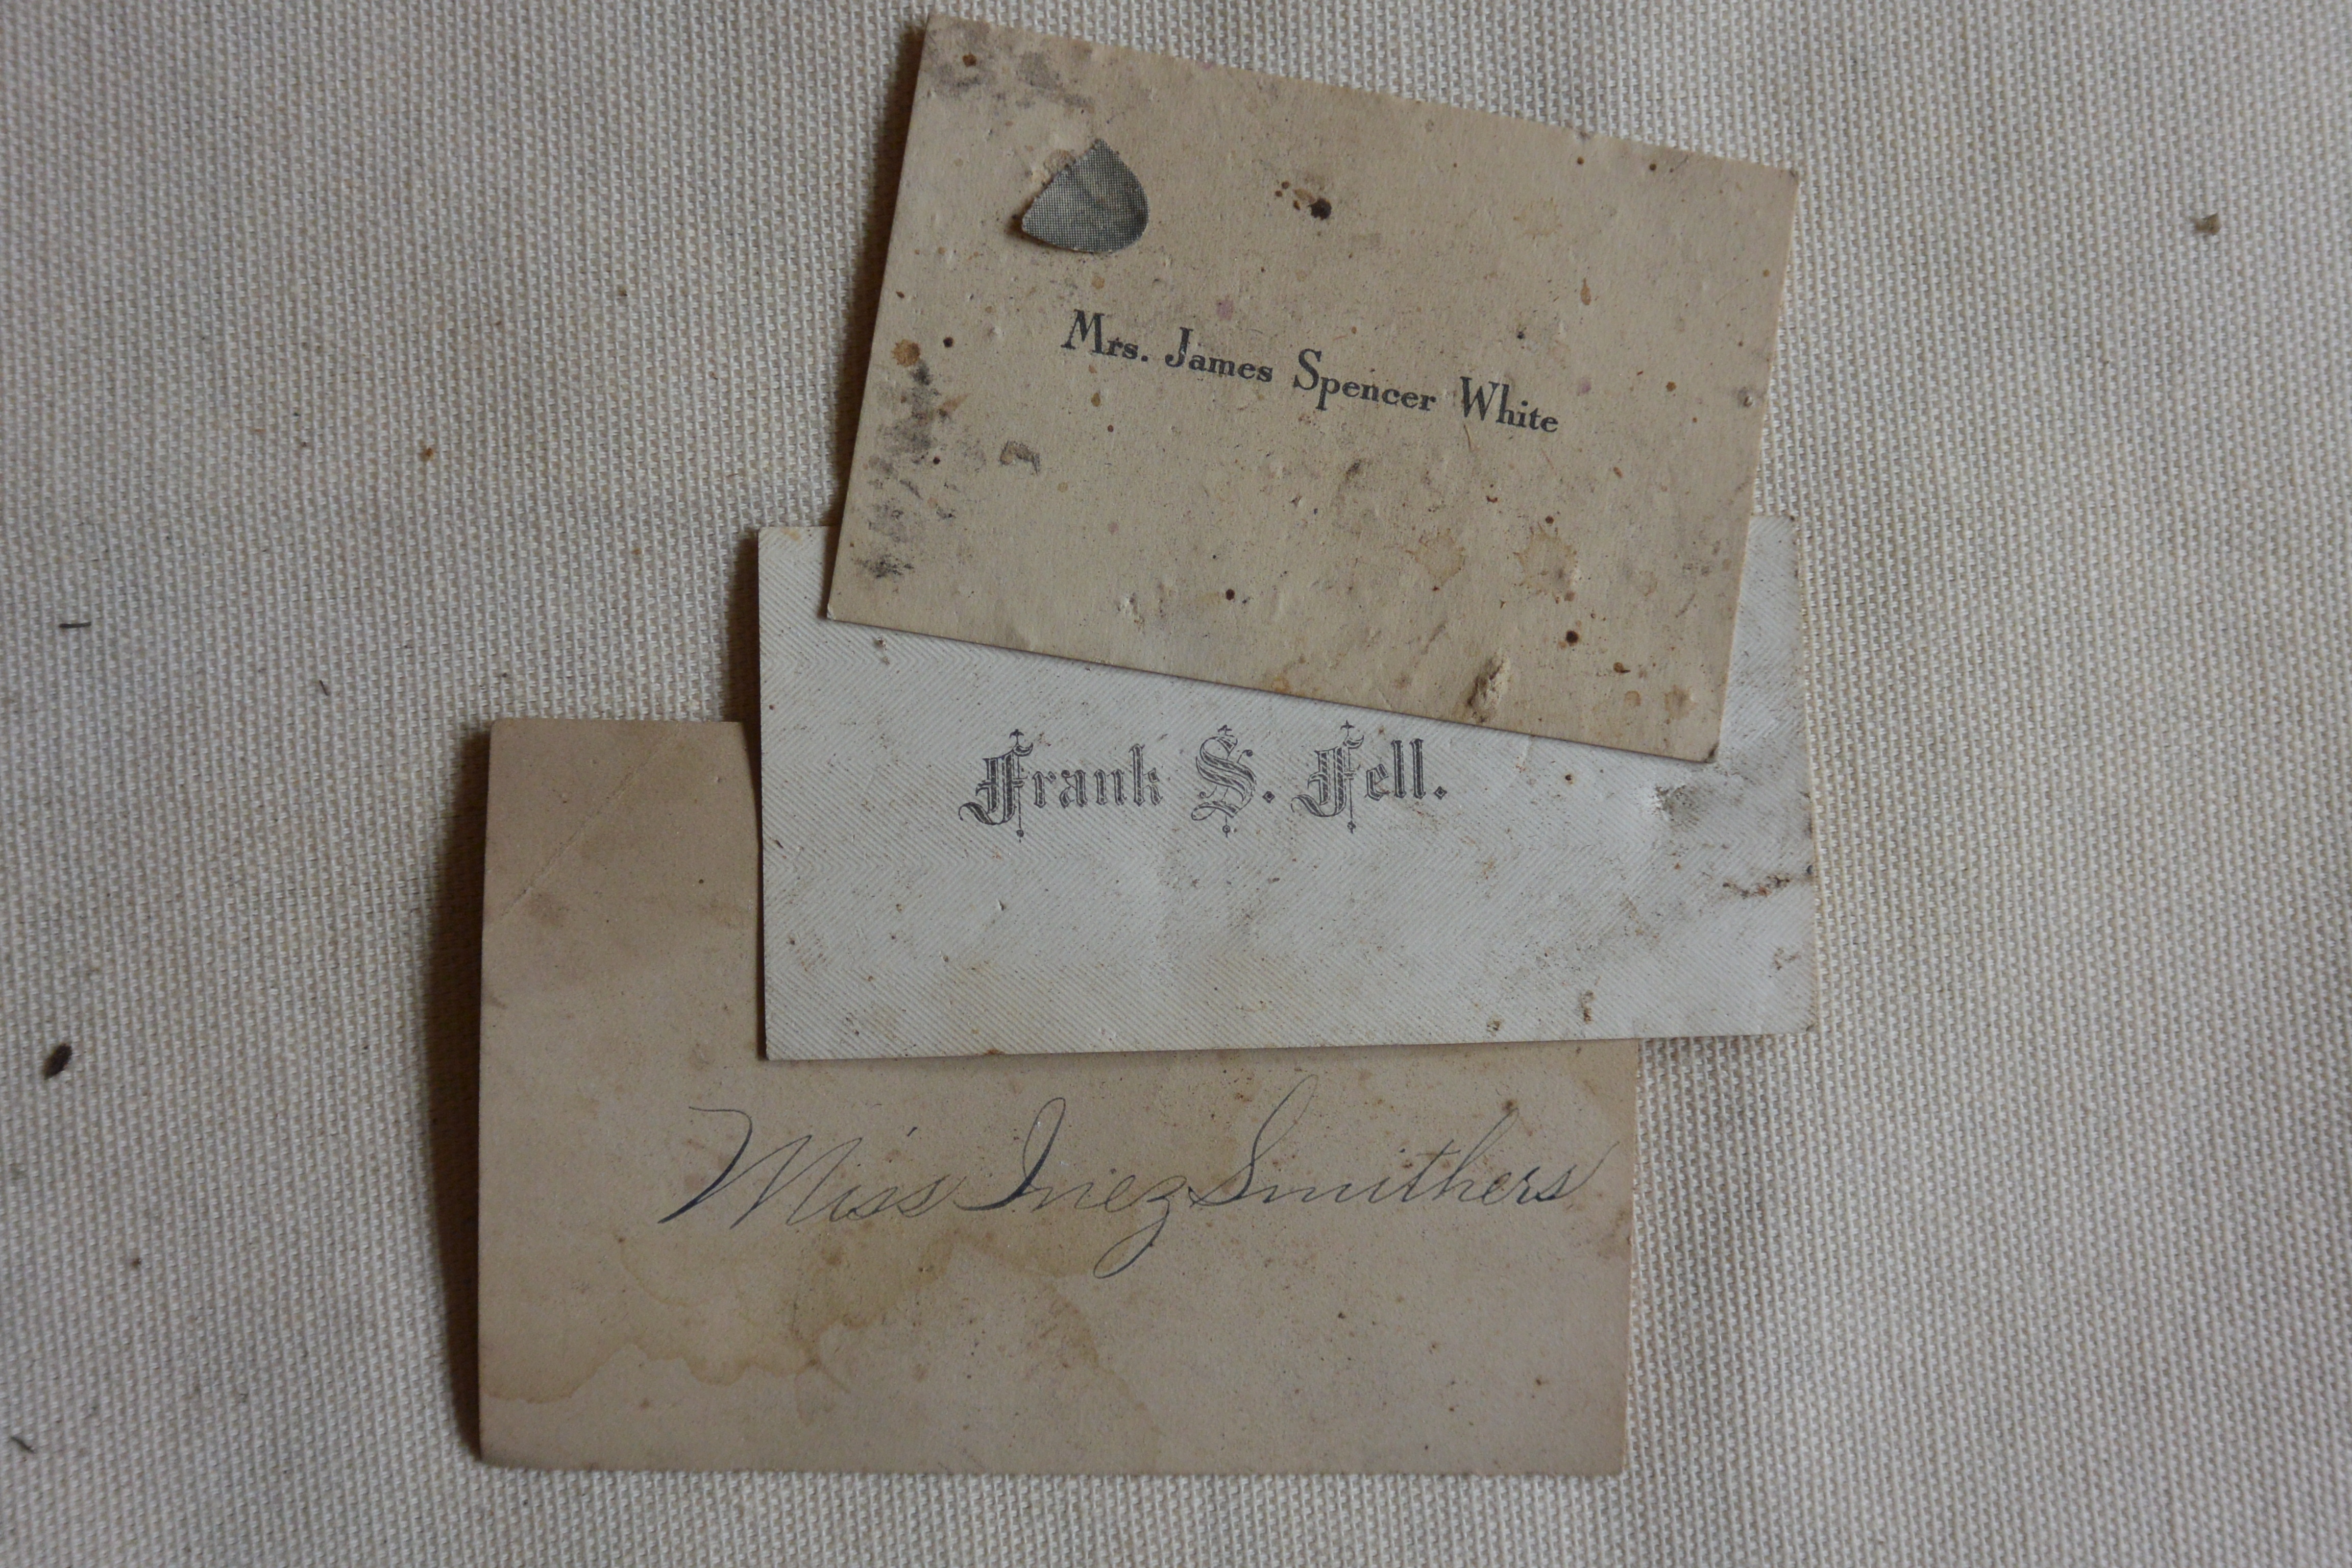 Mrs. James Spencer White
Frank S. Fell.
Miss Inez Smithers